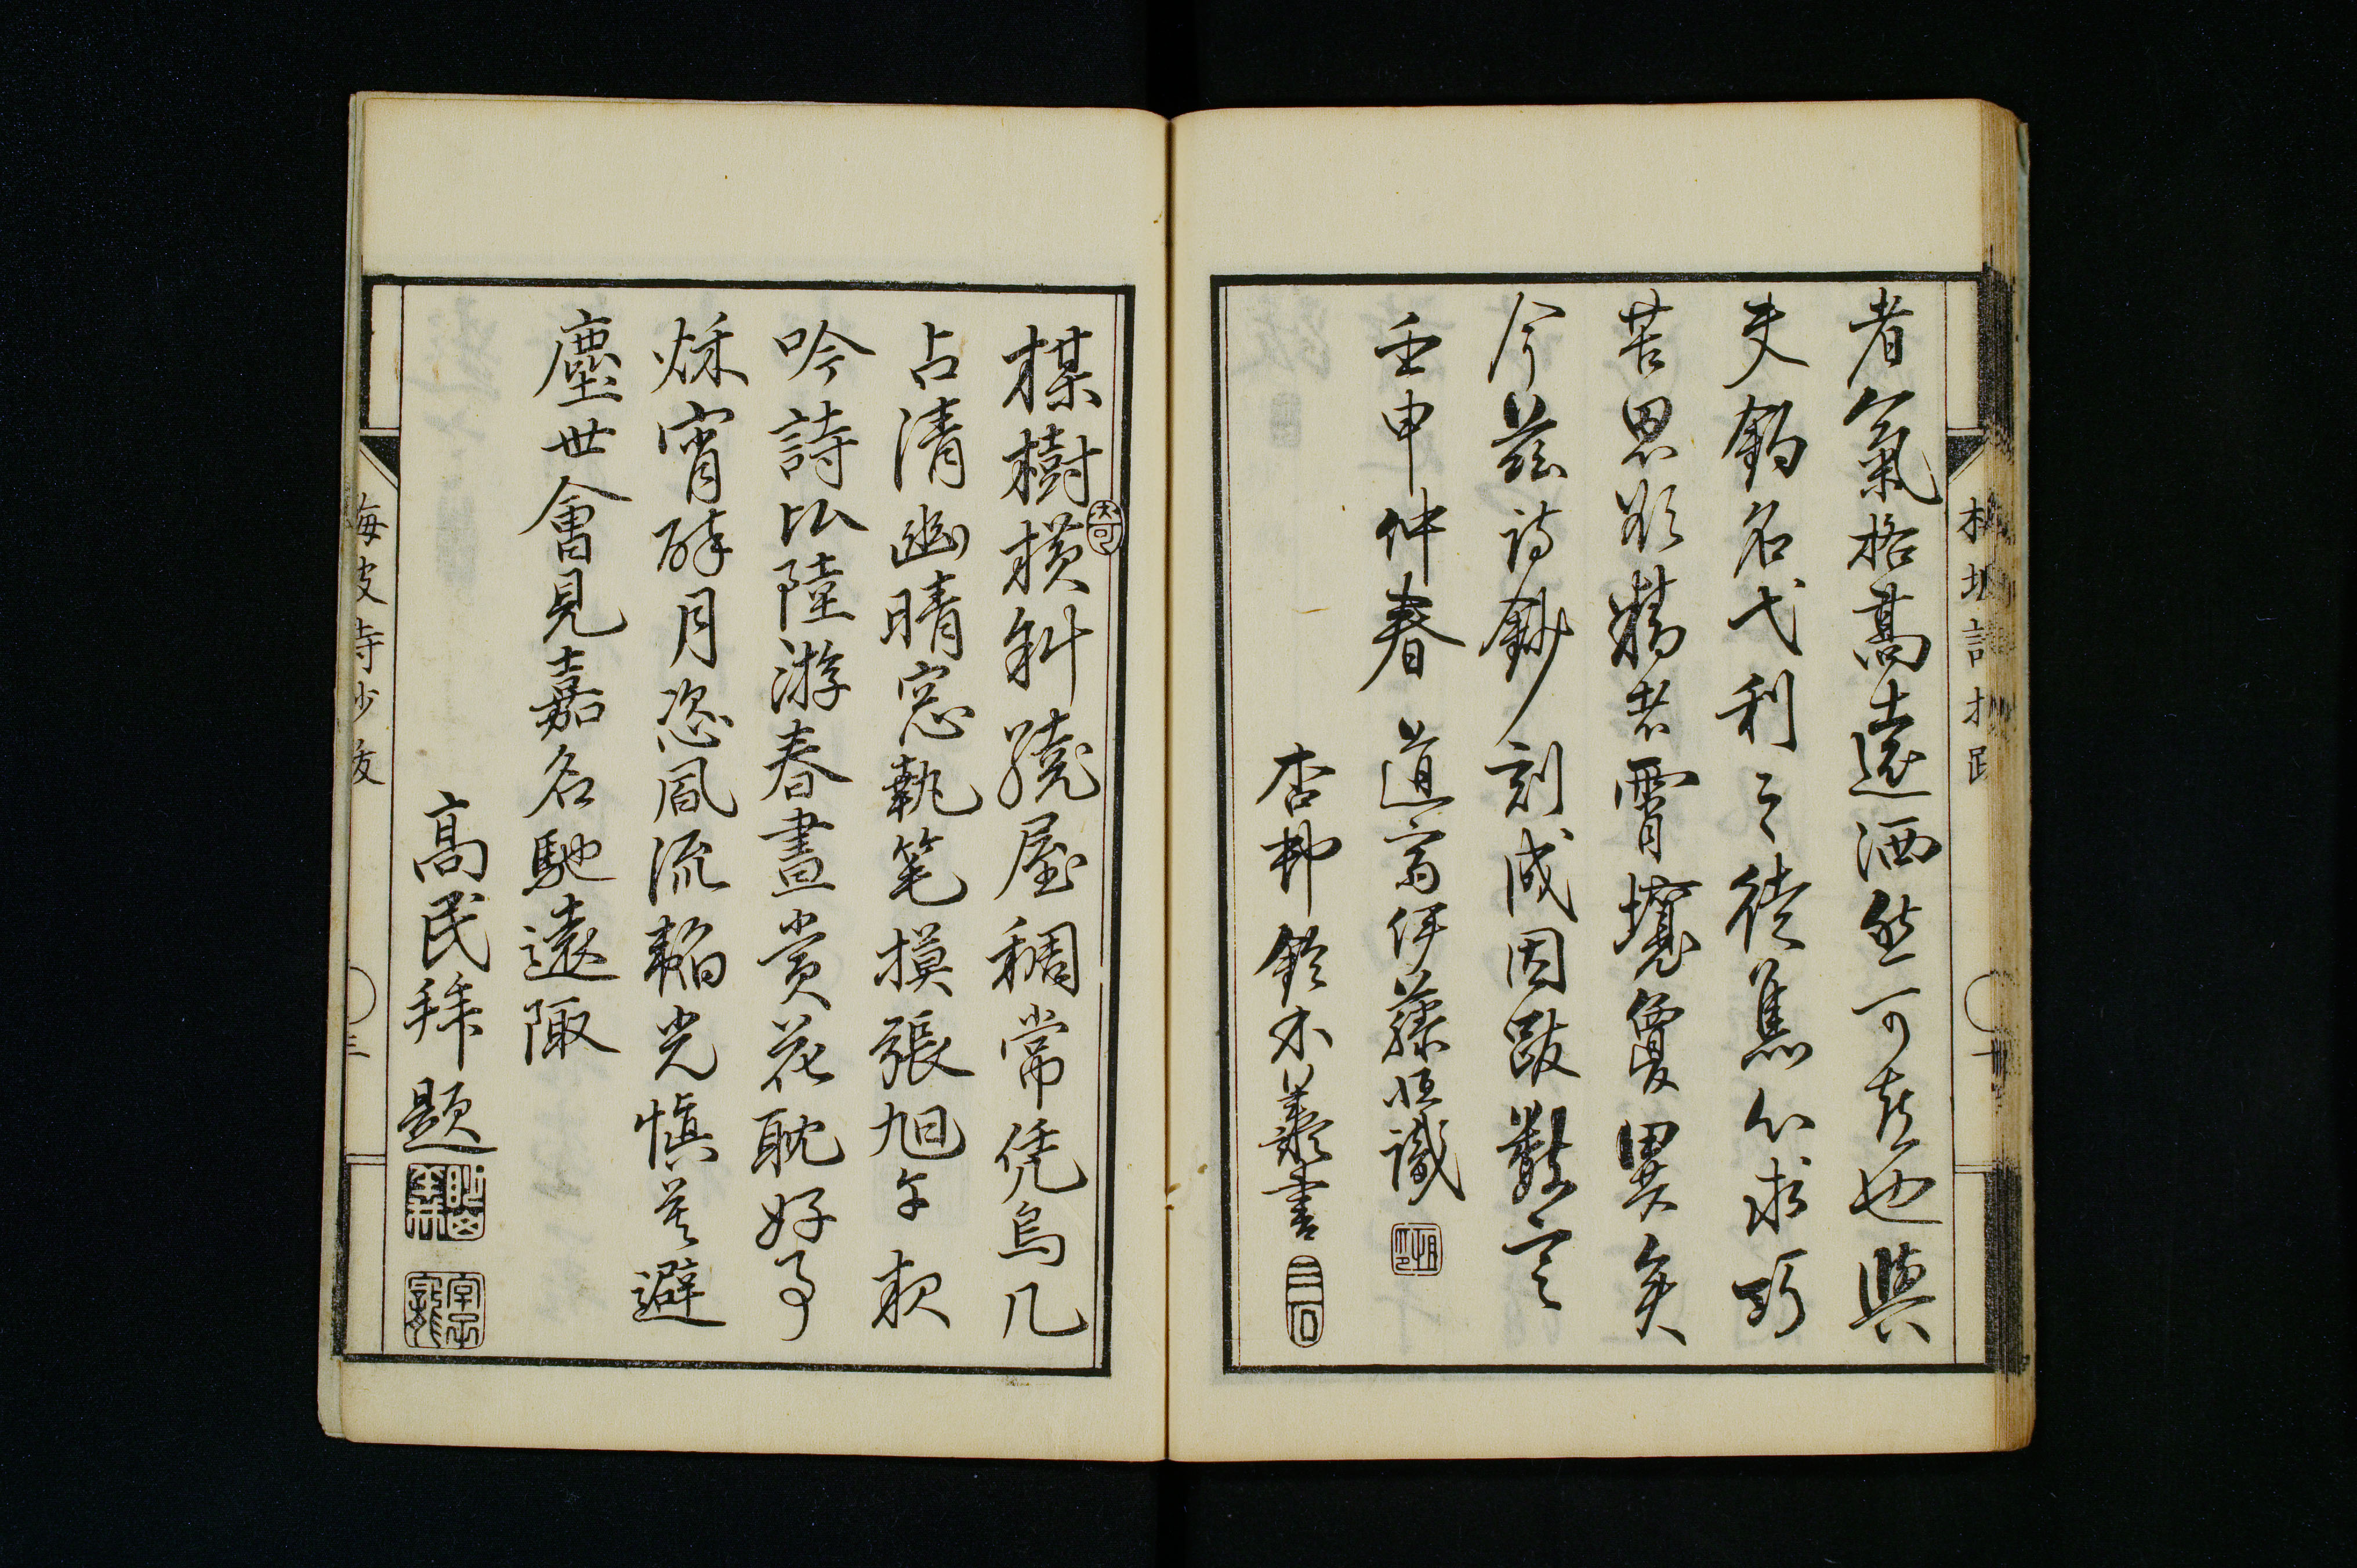 者氣格髙遠洒然可喜也與
夫釣名弋利之徒焦心求巧
苦思欲精者霄壤夐異矣
今茲詩鈔刻成因跋数言
壬申仲春 道齋伊藤恒識
杏邨鈴木義書
三石
楳樹横斜繞屋稠常凭烏几
占清幽晴窓執笔摸張旭午枕
吟詩公陸游春晝賞花耽好事
烁宵酔月恣風流韜光慎莫避
塵世會見嘉名馳遠陬
髙民拜題